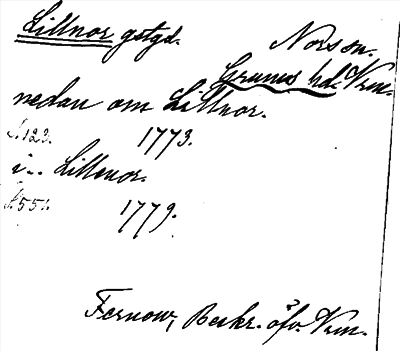 Lillnor gstgd. Nors sn.
Grums hd. Vrm.
nedan om Lillnor.
S. 123. 1773.
i.. Lillenor.
S. 551. 1779.
Fernow, Beskr. öfv. Vrm.